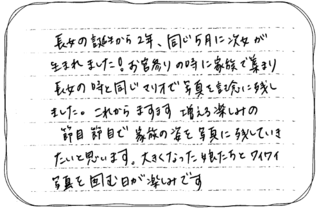 長女の誕生から2年、同じ5月に次女が
生まれました!お宮参りの時に家族で集まり
長女の時と同じマリオで写真を記念に残し
ました。これからますます増える楽しみの
節目節目で家族の姿を写真に残していき
たいと思います。大きくなった娘たちとワイワイ
写真を囲む日が楽しみです